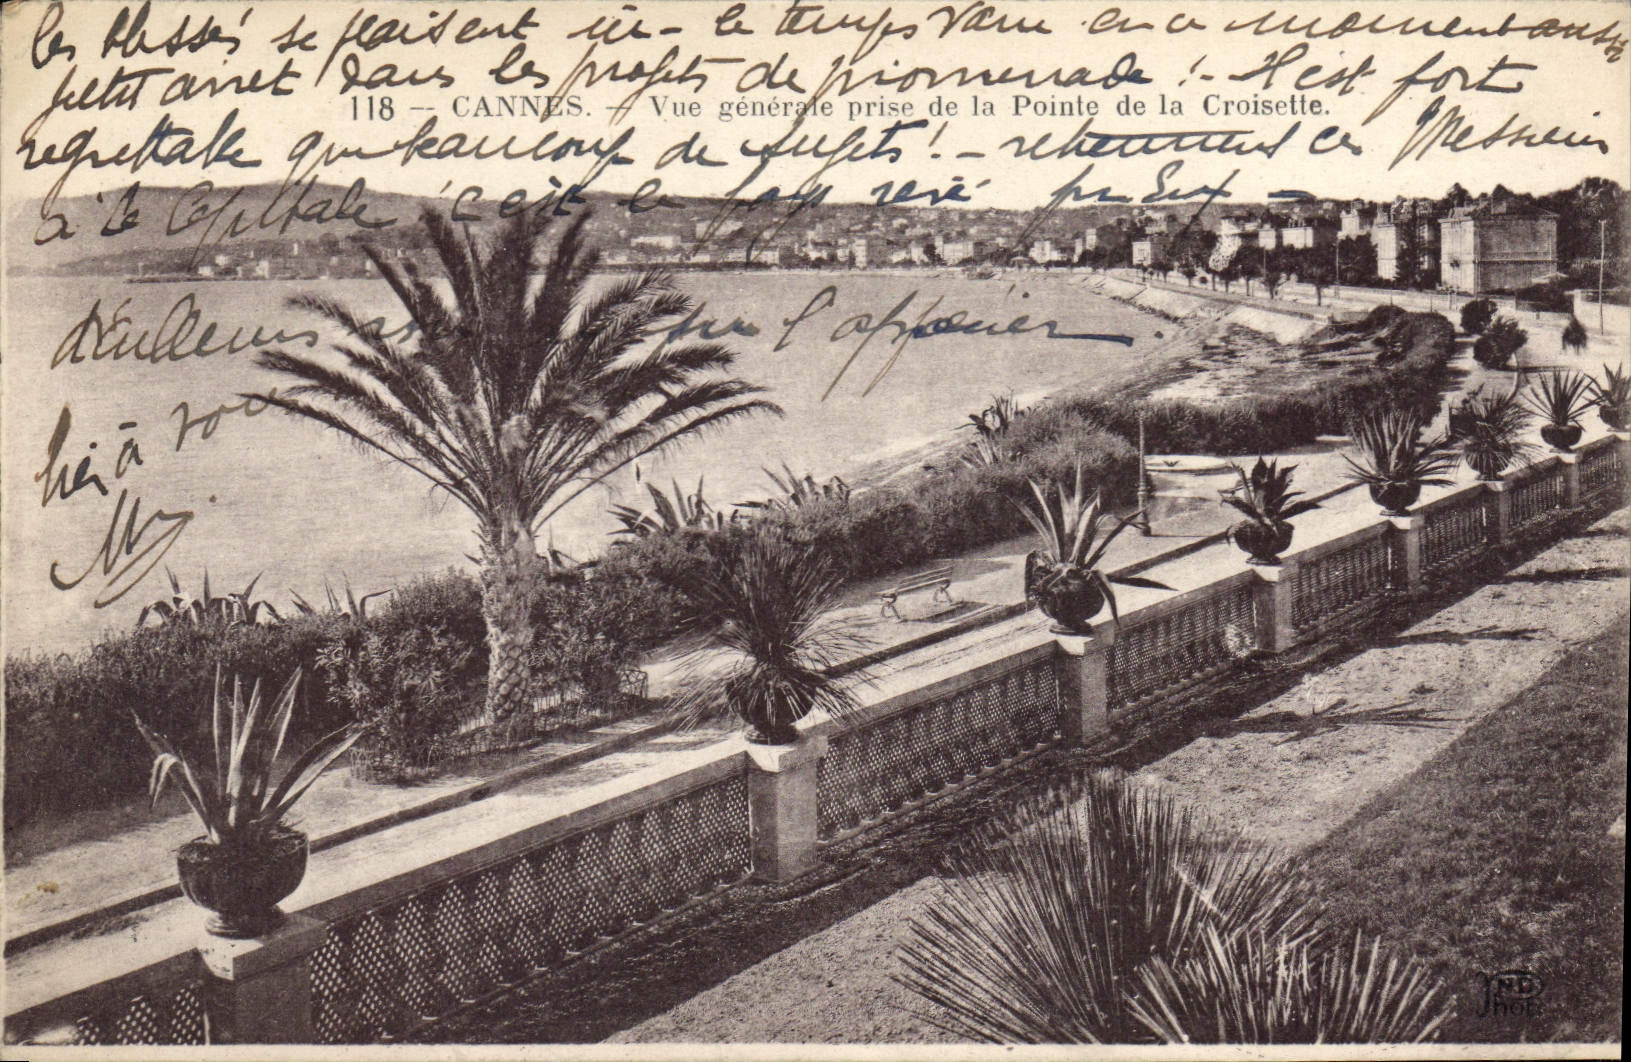 les blessés se plaisent ici - le temps varie en ce moment aussi
petit arret dans les projets de promenade ! - Il est fort
118 -- CANNES. — Vue générale prise de la Pointe de la Croisette.
regrettable que beaucoup de sujets ! - retiennent ces Messieurs
à la Capitale c'est le pays rêvé pr Eux -
d'ailleurs sur l'apprécier.
bien à vous
ND
Phot